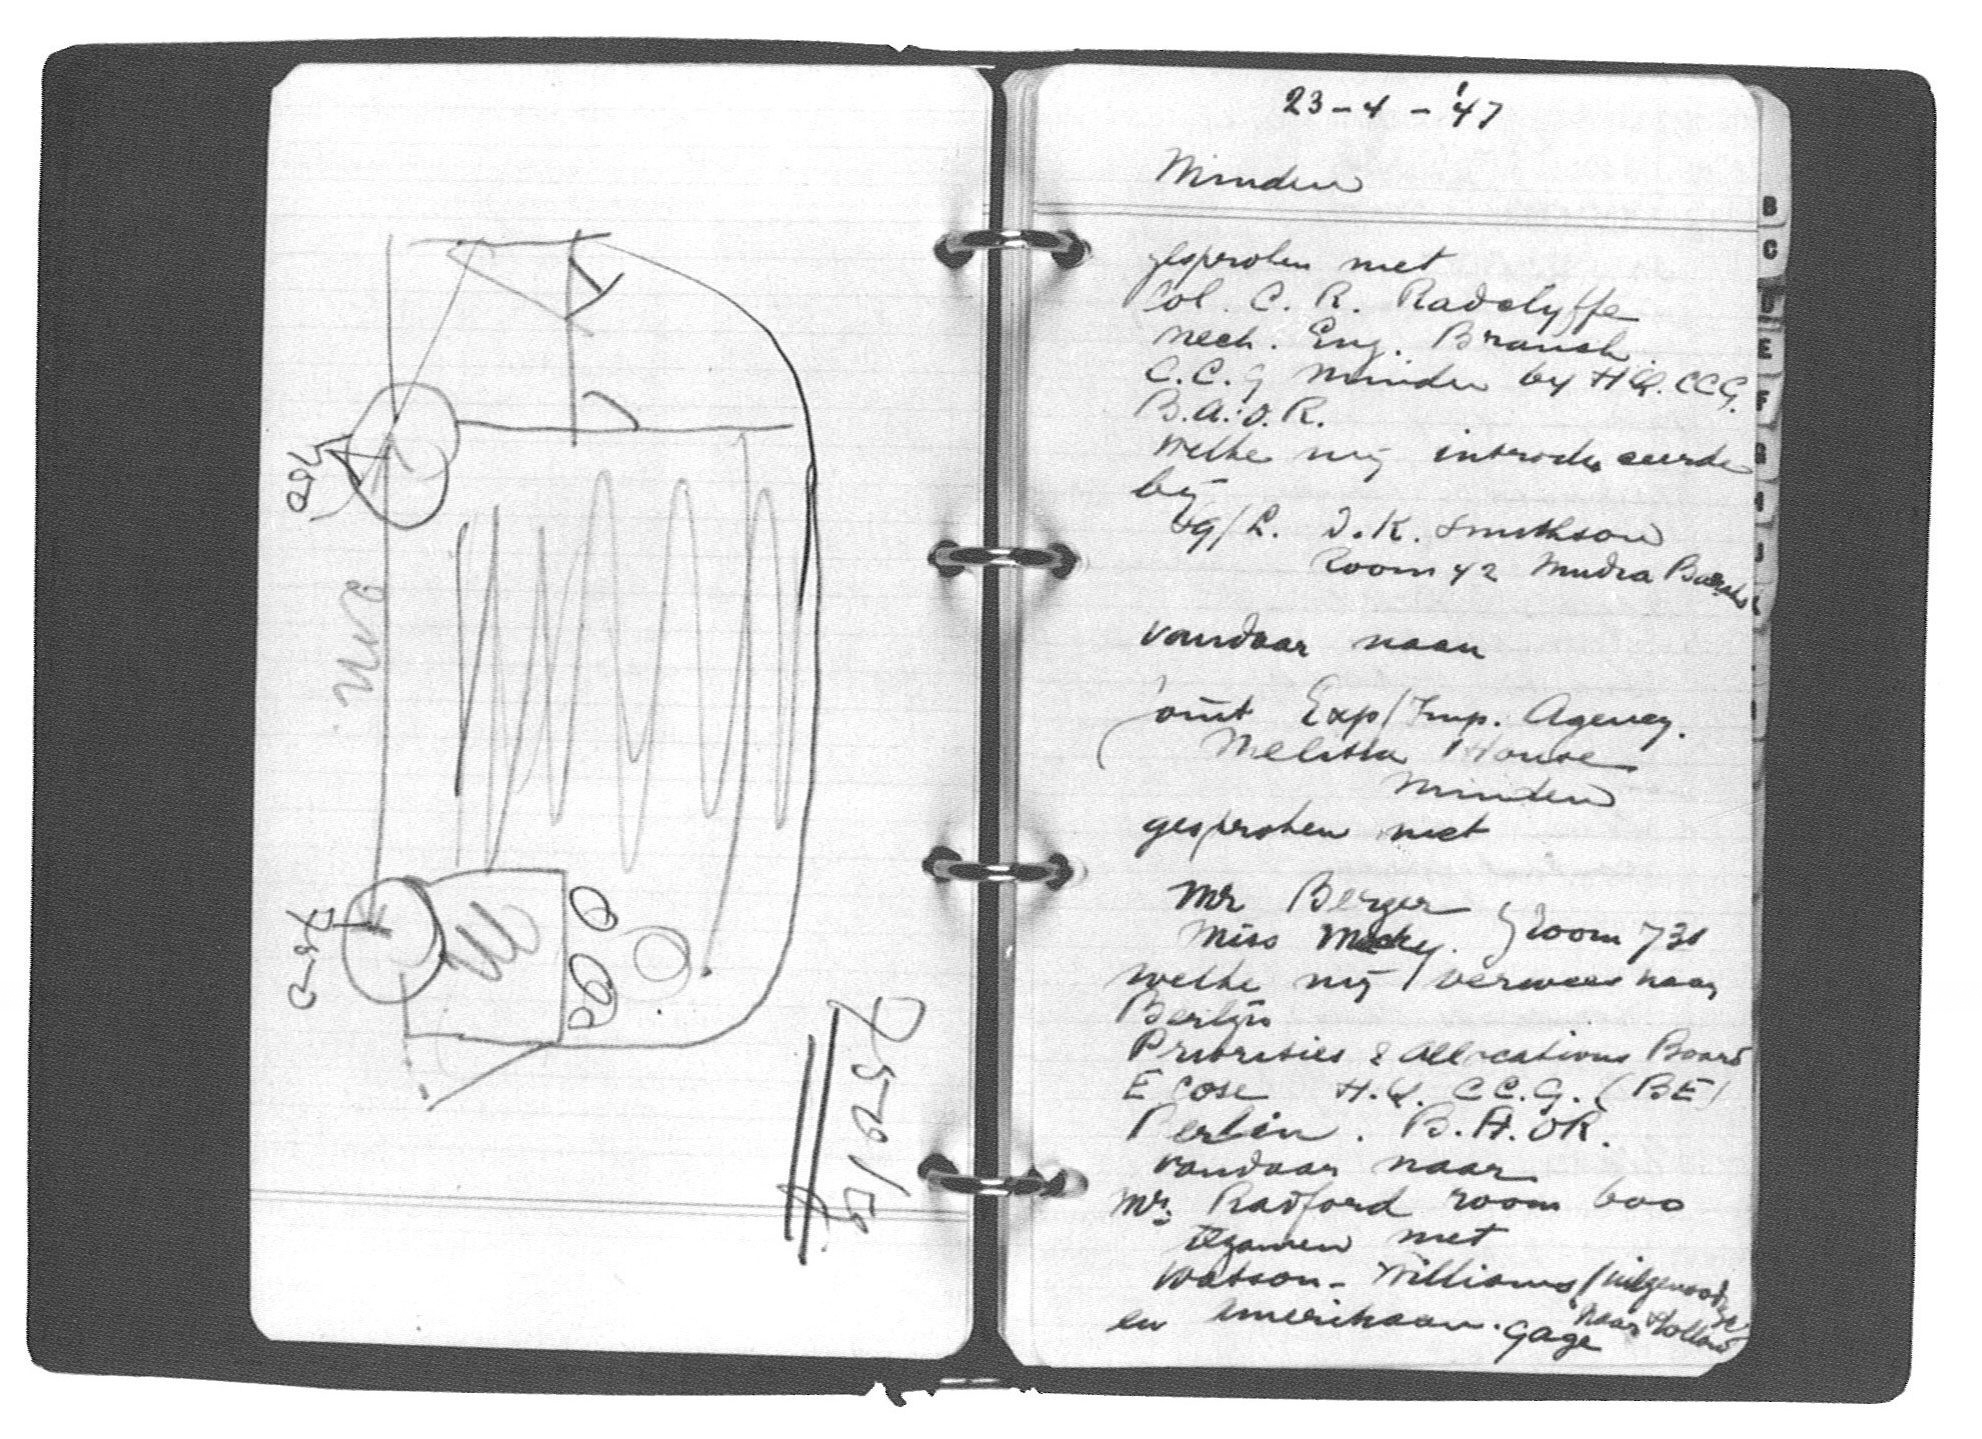 23-4-'47
Minden
gesproken met
Col. C. R. Radclyffe
Mech. Eng. Branch.
C.C.G Minden by HQ. CCG.
B.A.O.R.
welke mij introduceerde
bij
J.K. Smithson
Room 42 Mudra Barracks
vandaar naar
Joint Exp/Imp. Agency.
Melitta House
Minden
gesproken met
Mr Berger
Miss } Room 731
welke mij verwees naar
Berlijn
Priorities & Allocations Board
Ecose H.Q. CC.G. (BE)
Berlin. B.A.OR.
vandaar naar
Mr. Radford room 600
tezamen met
Watson-Williams (uitgenoodigd
naar Holland
en Amerikaan. Gage
B
C
D
E
F
G
H
J